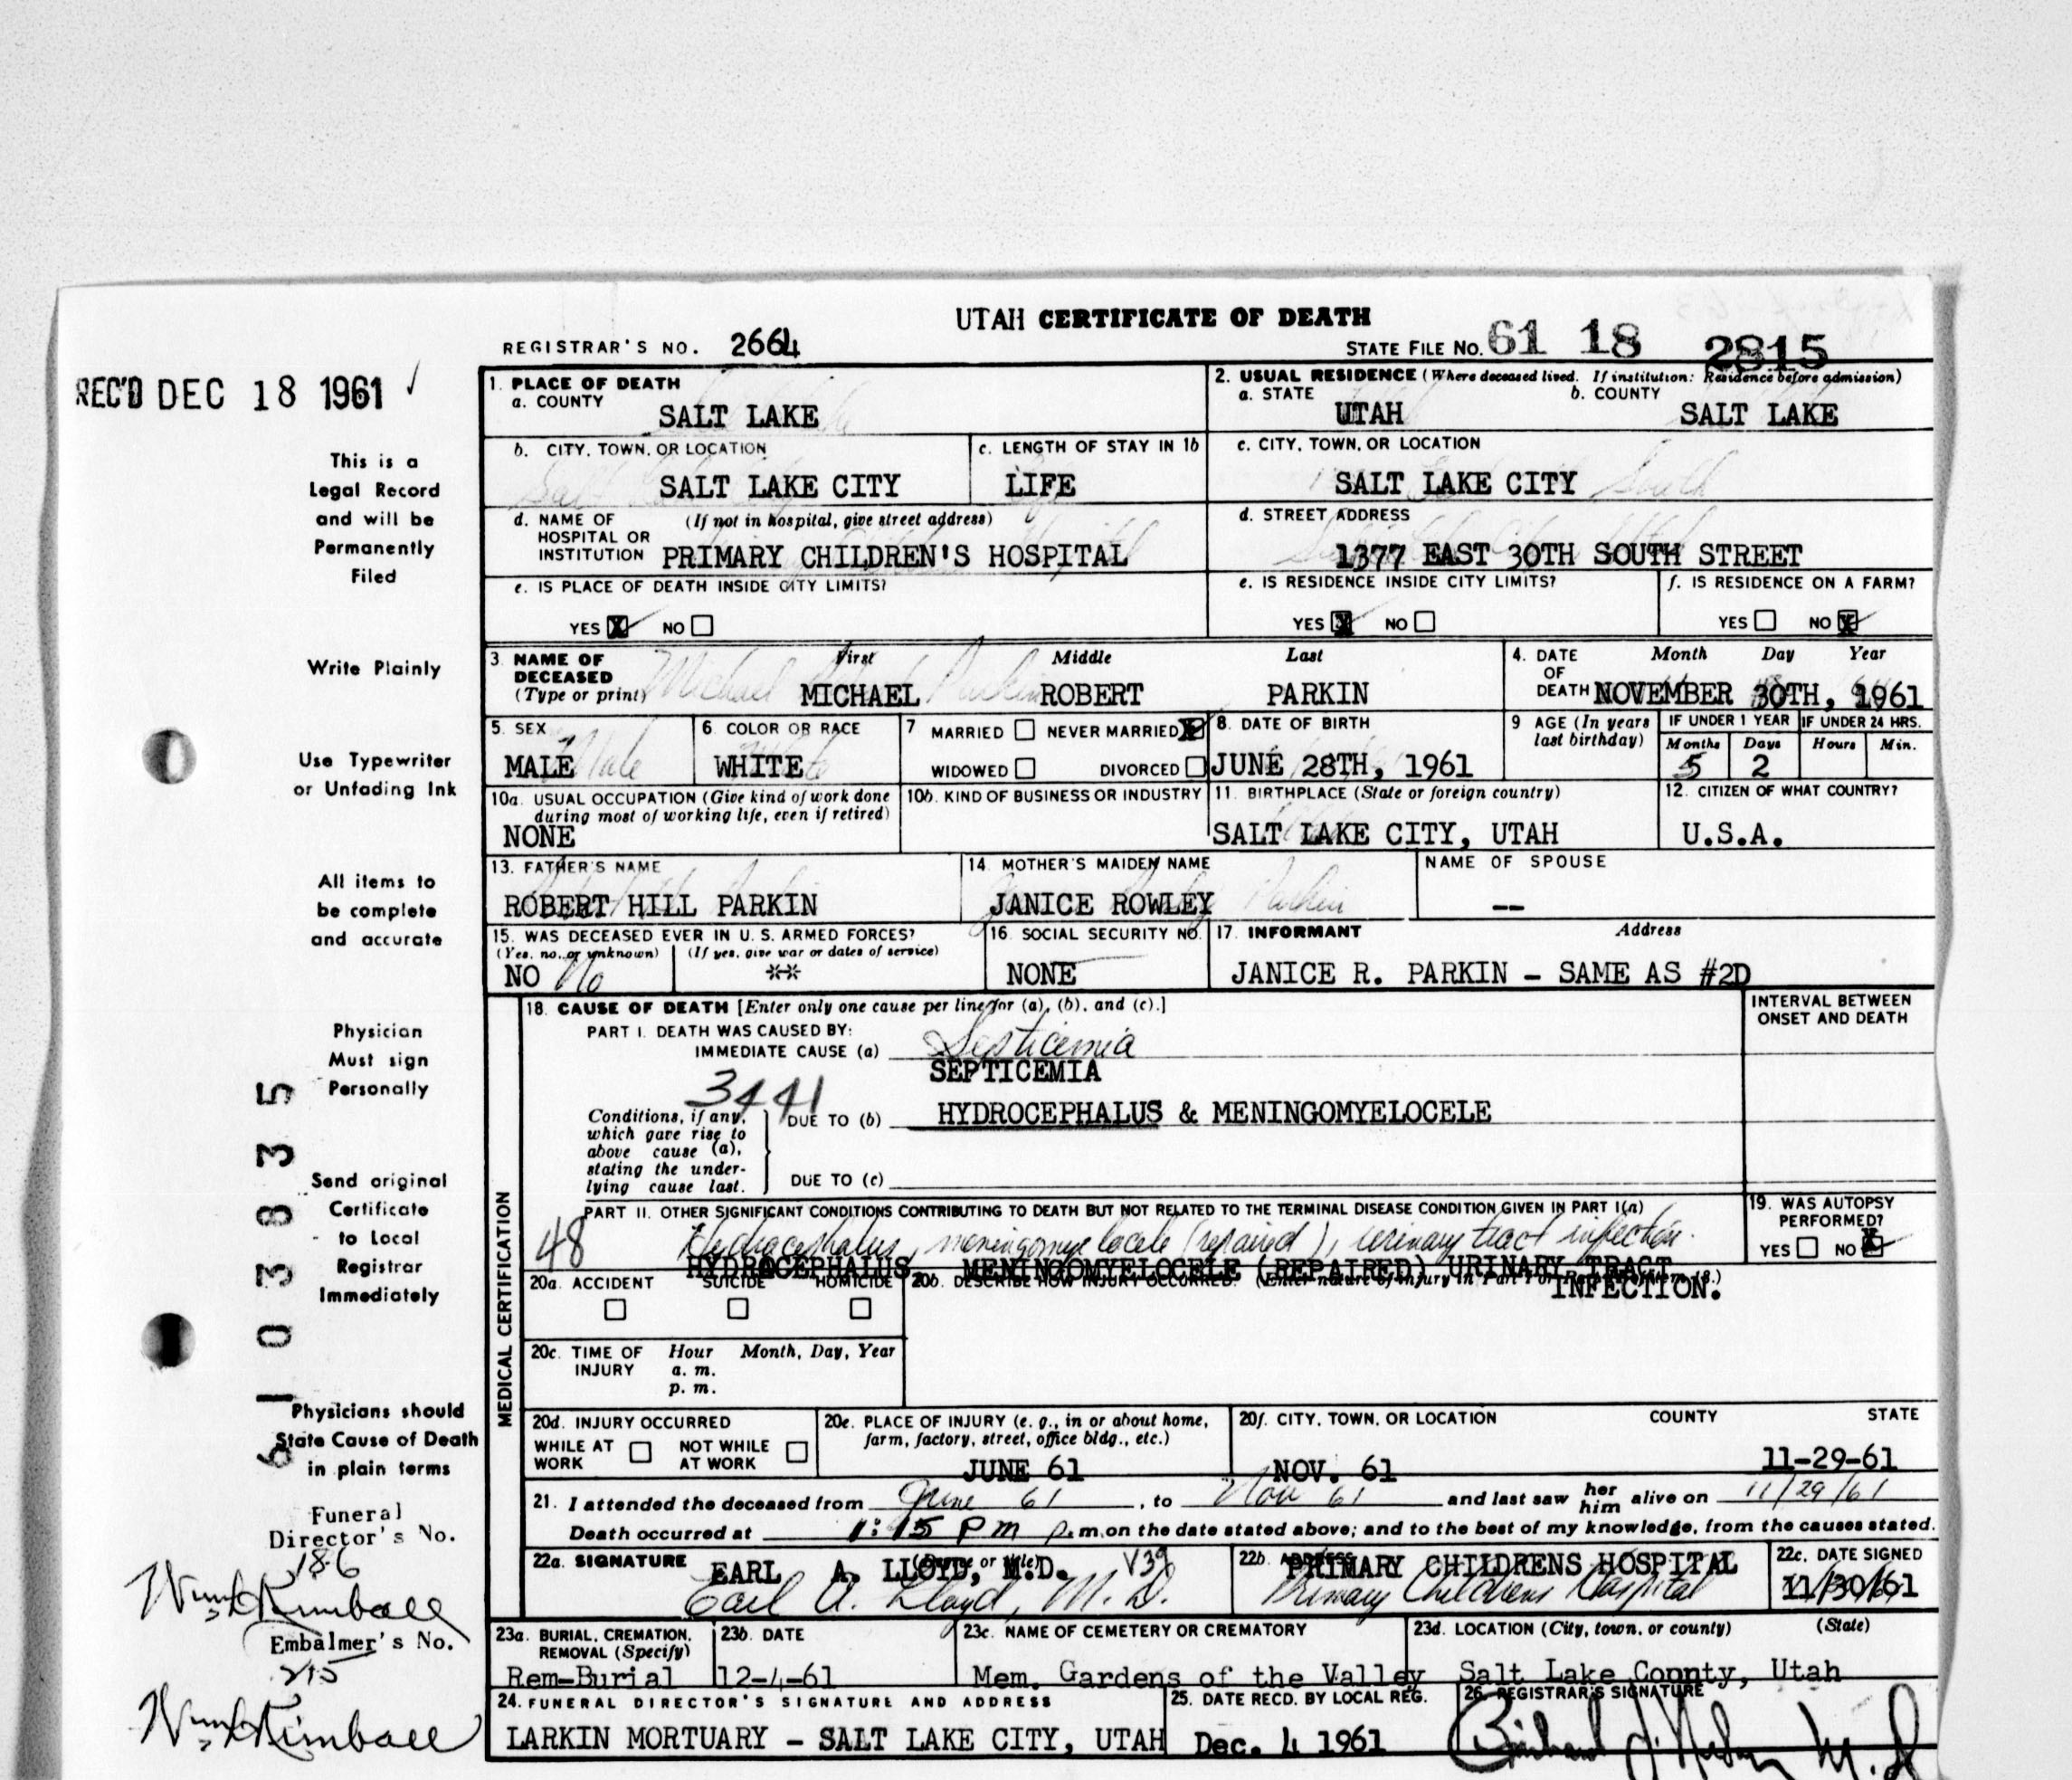 UTAH CERTIFICATE OF DEATH
REGISTRAR'S NO. 2664
STATE FILE No. 61 18 2815
REC'D DEC 18 1961 ✓
This is a
Legal Record
and will be
Permanently
Filed
Write Plainly
Use Typewriter
or Unfading Ink
All items to
be complete
and accurate
Physician
Must sign
Personally
Send original
Certificate
to Local
Registrar
Immediately
Physicians should
State Cause of Death
in plain terms
61038335
Funeral
Director's No.
186
Wm Kimball
Embalmer's No.
215
Wm Kimball
1. PLACE OF DEATH
a. COUNTY
SALT LAKE
2. USUAL RESIDENCE (Where deceased lived. If institution: Residence before admission)
a. STATE b. COUNTY
UTAH SALT LAKE
b. CITY, TOWN, OR LOCATION
SALT LAKE CITY
c. LENGTH OF STAY IN 1b
LIFE
c. CITY, TOWN, OR LOCATION
SALT LAKE CITY
d. NAME OF HOSPITAL OR INSTITUTION (If not in hospital, give street address)
PRIMARY CHILDREN'S HOSPITAL
d. STREET ADDRESS
1377 EAST 30TH SOUTH STREET
e. IS PLACE OF DEATH INSIDE CITY LIMITS?
YES X NO
e. IS RESIDENCE INSIDE CITY LIMITS?
YES X NO
f. IS RESIDENCE ON A FARM?
YES NO X
3. NAME OF DECEASED (Type or print) First Middle Last
Michael Parkin
MICHAEL ROBERT PARKIN
4. DATE OF DEATH Month Day Year
NOVEMBER 30TH, 1961
5. SEX
MALE Male
6. COLOR OR RACE
WHITE
7 MARRIED NEVER MARRIED X
WIDOWED DIVORCED
8. DATE OF BIRTH
JUNE 28TH, 1961
9 AGE (In years last birthday)
IF UNDER 1 YEAR IF UNDER 24 HRS.
Months Days Hours Min.
5 2
10a. USUAL OCCUPATION (Give kind of work done during most of working life, even if retired)
NONE
10b. KIND OF BUSINESS OR INDUSTRY
11. BIRTHPLACE (State or foreign country)
SALT LAKE CITY, UTAH
12. CITIZEN OF WHAT COUNTRY?
U.S.A.
13. FATHER'S NAME
ROBERT HILL PARKIN
14. MOTHER'S MAIDEN NAME
JANICE ROWLEY Parkin
NAME OF SPOUSE
--
15. WAS DECEASED EVER IN U. S. ARMED FORCES?
(Yes, no, or unknown) (If yes, give war or dates of service)
NO No **
16. SOCIAL SECURITY NO.
NONE
17. INFORMANT Address
JANICE R. PARKIN - SAME AS #2D
MEDICAL CERTIFICATION
18. CAUSE OF DEATH [Enter only one cause per line for (a), (b), and (c).]
INTERVAL BETWEEN ONSET AND DEATH
PART I. DEATH WAS CAUSED BY:
IMMEDIATE CAUSE (a) Septicemia
SEPTICEMIA
3441
Conditions, if any, which gave rise to above cause (a), stating the underlying cause last.
DUE TO (b) HYDROCEPHALUS & MENINGOMYELOCELE
DUE TO (c)
PART II. OTHER SIGNIFICANT CONDITIONS CONTRIBUTING TO DEATH BUT NOT RELATED TO THE TERMINAL DISEASE CONDITION GIVEN IN PART I(a)
48 Hydrocephalus, meningomyelocele (repaired), urinary tract infection.
HYDROCEPHALUS, MENINGOMYELOCELE (REPAIRED) URINARY TRACT
INFECTION.
19. WAS AUTOPSY PERFORMED?
YES NO X
20a. ACCIDENT SUICIDE HOMICIDE
20b. DESCRIBE HOW INJURY OCCURRED. (Enter nature of injury in Part I or Part II of item 18.)
20c. TIME OF INJURY Hour Month, Day, Year
a. m.
p. m.
20d. INJURY OCCURRED
WHILE AT WORK NOT WHILE AT WORK
20e. PLACE OF INJURY (e. g., in or about home, farm, factory, street, office bldg., etc.)
20f. CITY, TOWN, OR LOCATION COUNTY STATE
JUNE 61 NOV. 61 11-29-61
21. I attended the deceased from June 61, to Nov 61 and last saw her him alive on 11/29/61
Death occurred at 1:15 PM p.m. on the date stated above; and to the best of my knowledge, from the causes stated.
22a. SIGNATURE (Degree or title)
EARL A. LLOYD, M.D. V39
Earl A. Lloyd, M.D.
22b. ADDRESS
PRIMARY CHILDRENS HOSPITAL
Primary Childrens Hospital
22c. DATE SIGNED
11/30/61
23a. BURIAL, CREMATION, REMOVAL (Specify)
Rem-Burial
23b. DATE
12-4-61
23c. NAME OF CEMETERY OR CREMATORY
Mem. Gardens of the Valley
23d. LOCATION (City, town, or county) (State)
Salt Lake County, Utah
24. FUNERAL DIRECTOR'S SIGNATURE AND ADDRESS
LARKIN MORTUARY - SALT LAKE CITY, UTAH
25. DATE RECD. BY LOCAL REG.
Dec. 4 1961
26. REGISTRAR'S SIGNATURE
M.D.